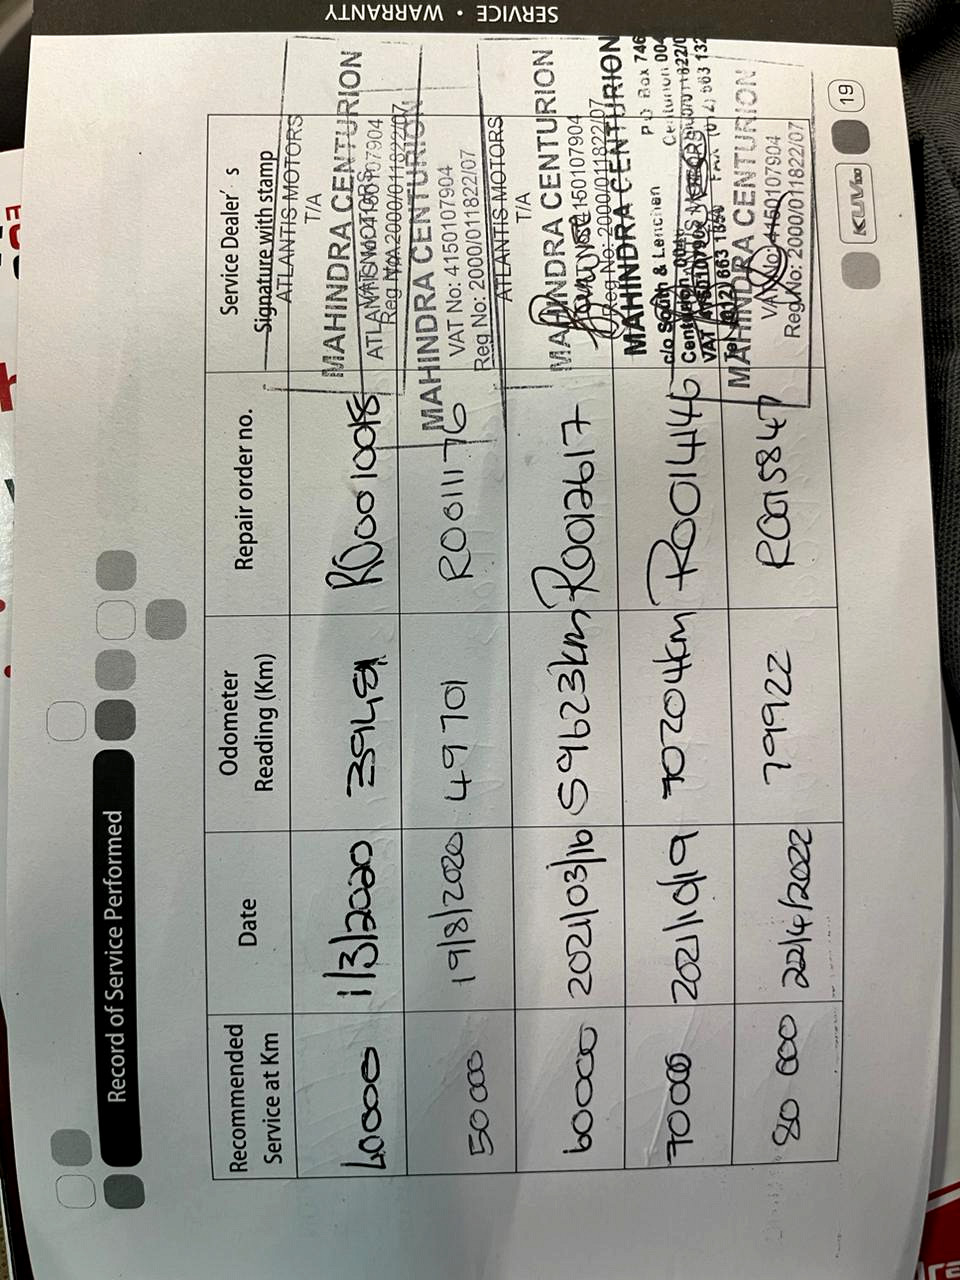 SERVICE • WARRANTY
Record of Service Performed
Recommended Service at Km Date Odometer Reading (Km) Repair order no. Service Dealer's Signature with stamp
40000 1/3/2020 39481 R0010018
ATLANTIS MOTORS
T/A
MAHINDRA CENTURION
50 000 19/8/2020 49701 R0011176
ATLANTIS MOTORS
MAHINDRA CENTURION
VAT No: 4150107904
Reg No: 2000/011822/07
60000 2021/03/16 59623km R0012617
ATLANTIS MOTORS
T/A
MAHINDRA CENTURION
Reg No: 2000/011822/07
70000 2021/10/19 70204km R0014146
MAHINDRA CENTURION
c/o South & Lenchen
P O Box 746
80 000 22/4/2022 79922 R0015847
MAHINDRA CENTURION
VAT No: 4150107904
Reg No: 2000/011822/07
KUV100 19